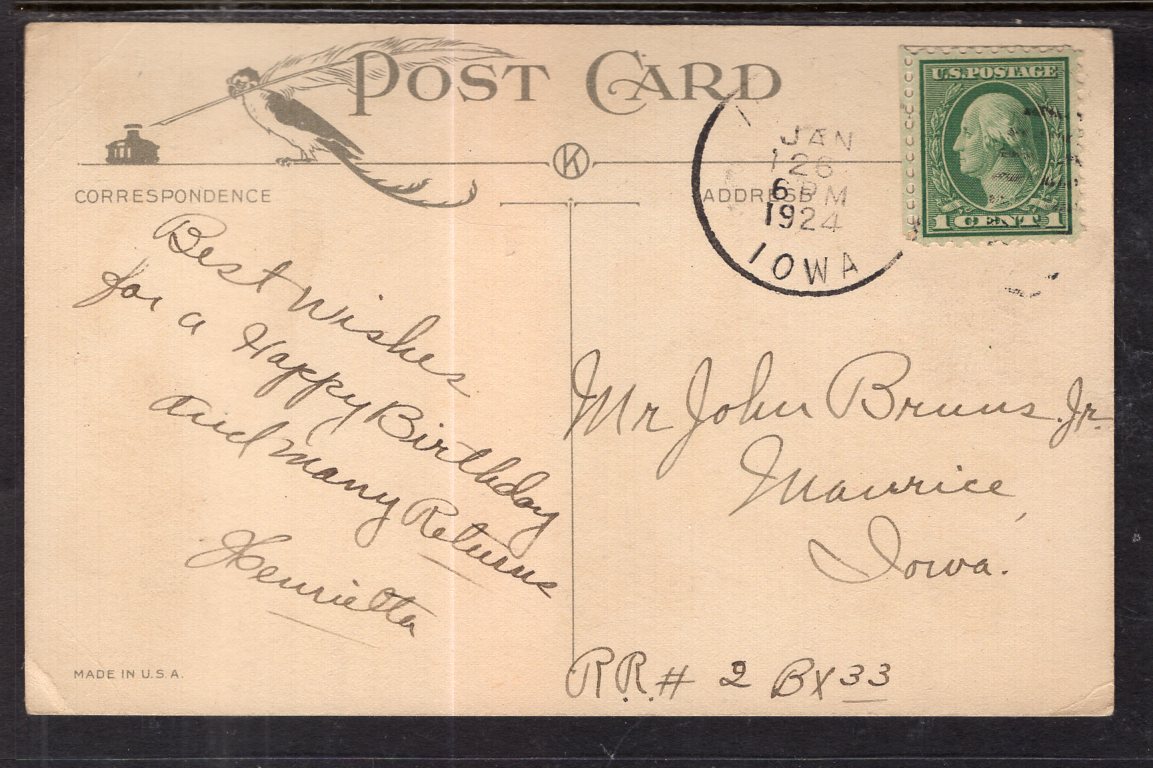 POST CARD
U.S. POSTAGE
1 CENT 1
JAN
26
6 PM
1924
IOWA
K
CORRESPONDENCE
ADDRESS
Best Wishes
for a Happy Birthday
and many Returns
Henrietta
Mr John Bruns Jr.
Maurice,
Iowa.
R.R. # 2 Bx 33
MADE IN U.S.A.